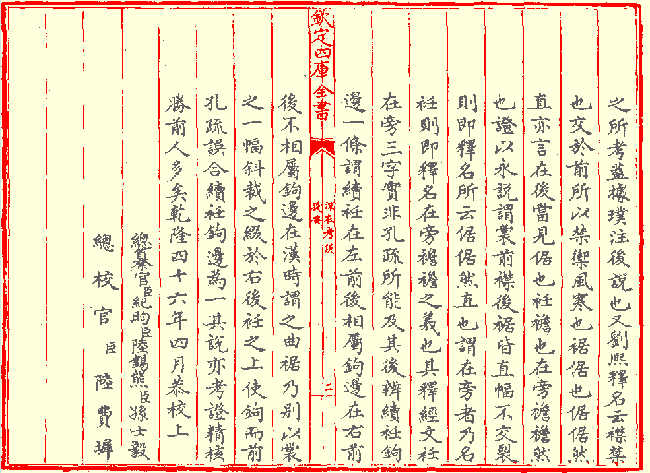 之所考蓋據璞注後說也又劉熙釋名云襟禁
也交於前所以禁禦風寒也裾倨也倨倨然
直亦言在後當見倨也衽襜也在旁襜襜然
也證以永說謂裳前襟後裾皆直幅不交裂
則即釋名所云倨倨然直也謂在旁者乃名
衽則即釋名在旁襜襜之義也其釋經文衽
在旁三字實非孔疏所能及其後辨續衽鈎
邊一條謂續衽在左前後相屬鈎邊在右前
欽定四庫全書
深衣考誤
提要
二
後不相屬鈎邊在漢時謂之曲裾乃别以裳
之一幅斜裁之綴於右後衽之上使鈎而前
孔疏誤合續衽鈎邊為一其說亦考證精核
勝前人多矣乾隆四十六年四月恭校上
總纂官臣紀昀臣陸錫熊臣孫士毅
總校官臣陸費墀